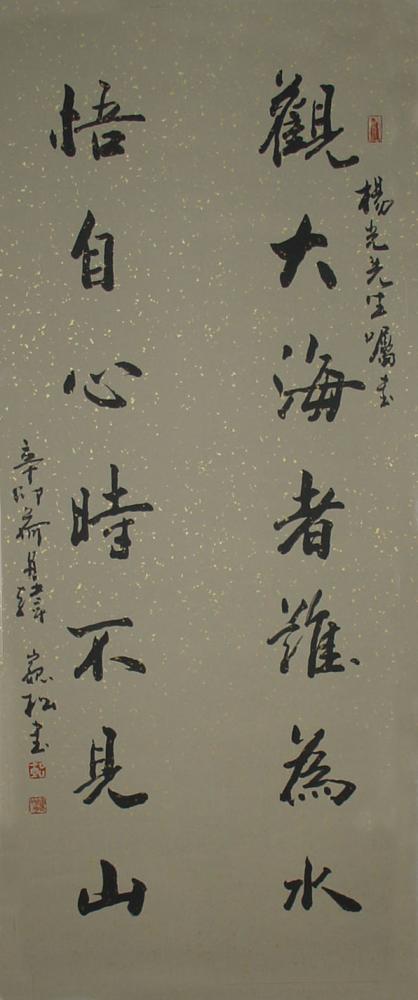 楊光先生囑書
觀大海者難為水
悟自心時不見山
辛卯荷月韓嵬松書